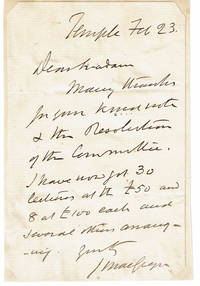 Temple Feb 23.
Dear Madam
Many thanks
for your kind note
& the Resolution
of the Committee.
I have now got 30
lectures at the £50 and
8 at £100 each and
several others
J MacGregor